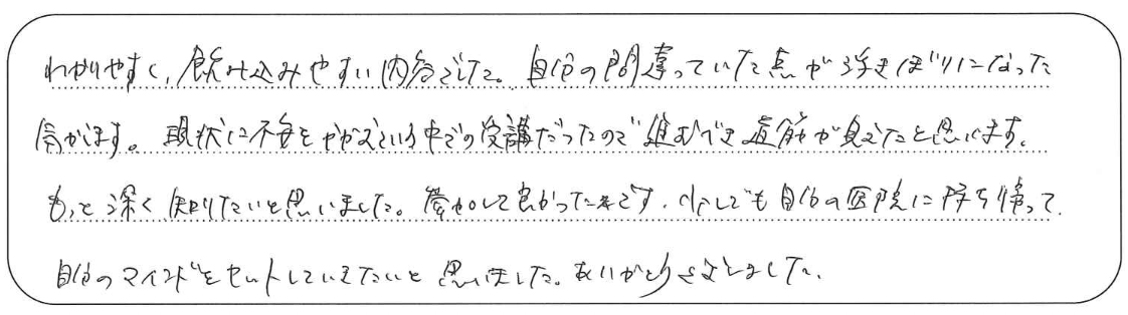 わかりやすく、飲み込みやすい内容でした。自分の間違っていた点が浮きぼりになった
気がします。現状に不安をかかえている中での受講だったので進むべき道筋が見えたと思います。
もっと深く知りたいと思いました。参加して良かったです。少しでも自分の医院に持ち帰って
自分のマインドをセットしていきたいと思いました。ありがとうございました。